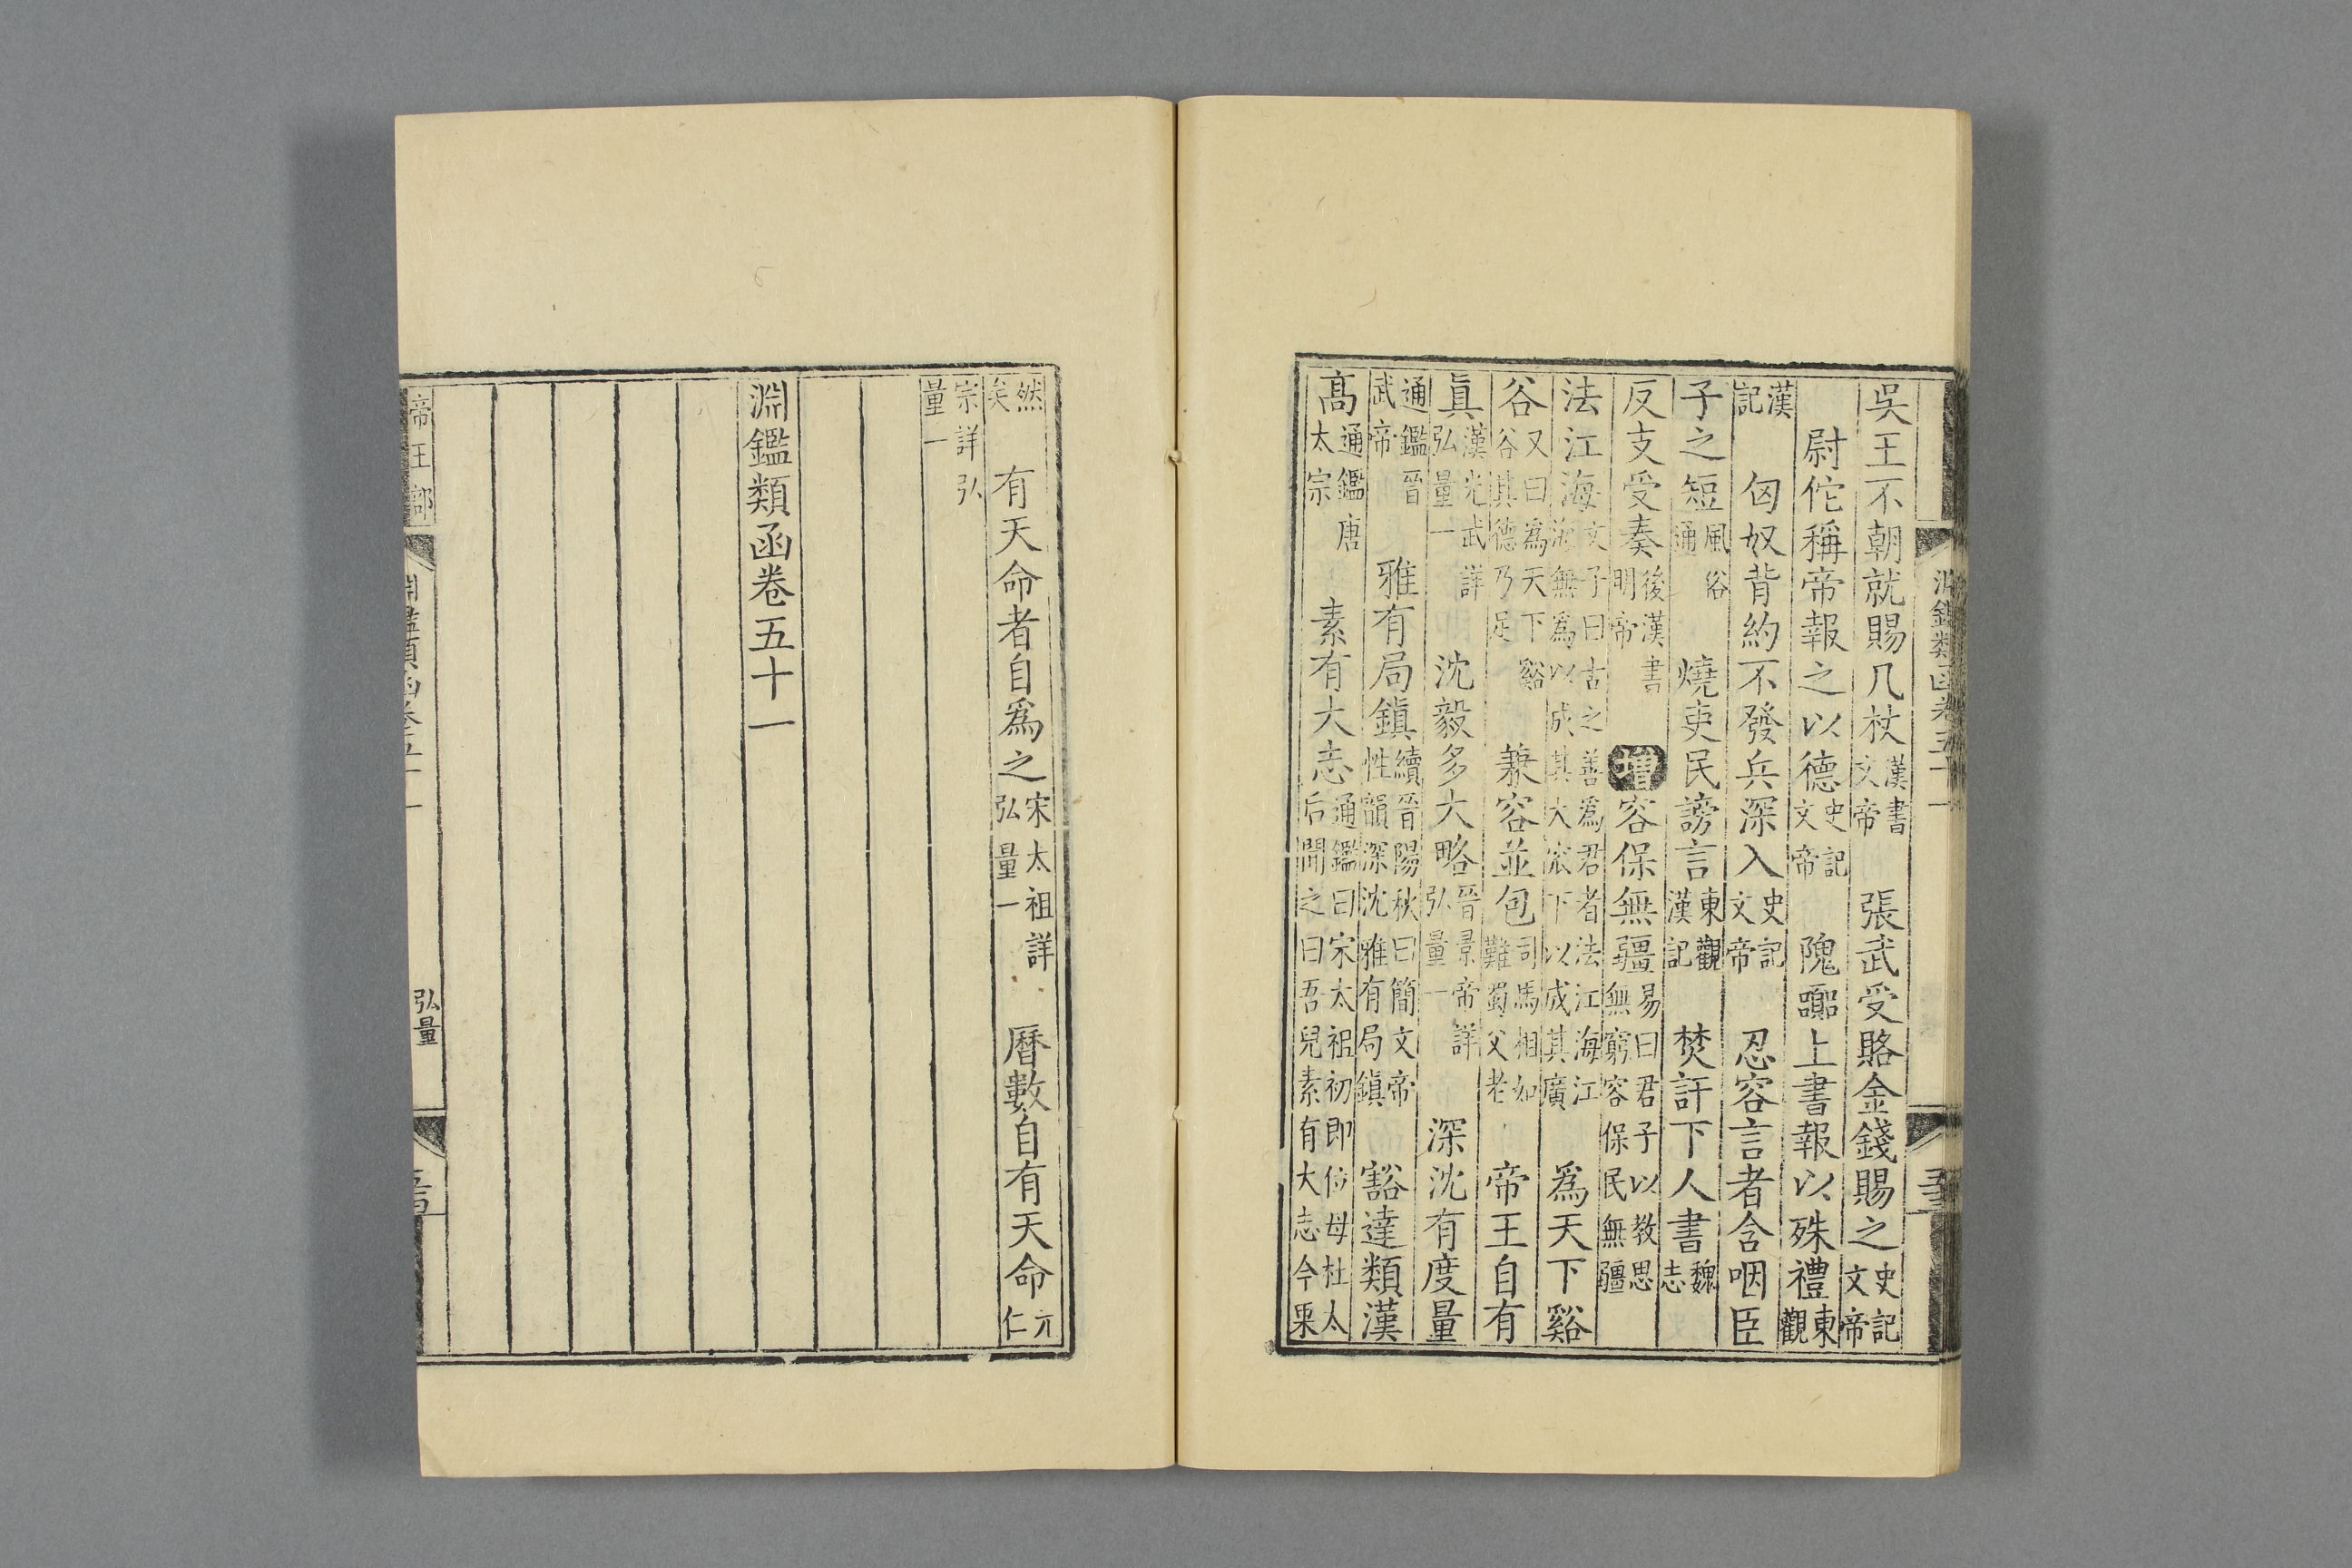 淵鑑類函卷五十一
吳王不朝就賜几杖漢書文帝 張武受賂金錢賜之史記文帝
尉佗稱帝報之以德史記文帝 隗囂上書報以殊禮東觀
漢記 匈奴背約不發兵深入史記文帝 忍容言者含咽臣
子之短風俗通 燒吏民謗言東觀漢記 焚訐下人書魏志
反支受奏後漢書明帝 增容保無疆易曰君子以教思無窮容保民無疆
法江海文子曰古之善爲君者法江海江海無爲以成其大窊下以成其廣 爲天下谿
谷又曰爲天下谿谷其德乃足 兼容並包司馬相如難蜀父老 帝王自有
眞漢光武詳弘量一 沈毅多大略晉景帝詳弘量一 深沈有度量
通鑑晉武帝 雅有局鎭續晉陽秋曰簡文帝性韻深沈雅有局鎭 豁達類漢
高通鑑唐太宗 素有大志通鑑曰宋太祖初即位母杜太后聞之曰吾兒素有大志今果
然矣 有天命者自爲之宋太祖詳弘量一 曆數自有天命元仁
宗詳弘量一
淵鑑類函卷五十一
帝王部
淵鑑類函卷五十一
弘量